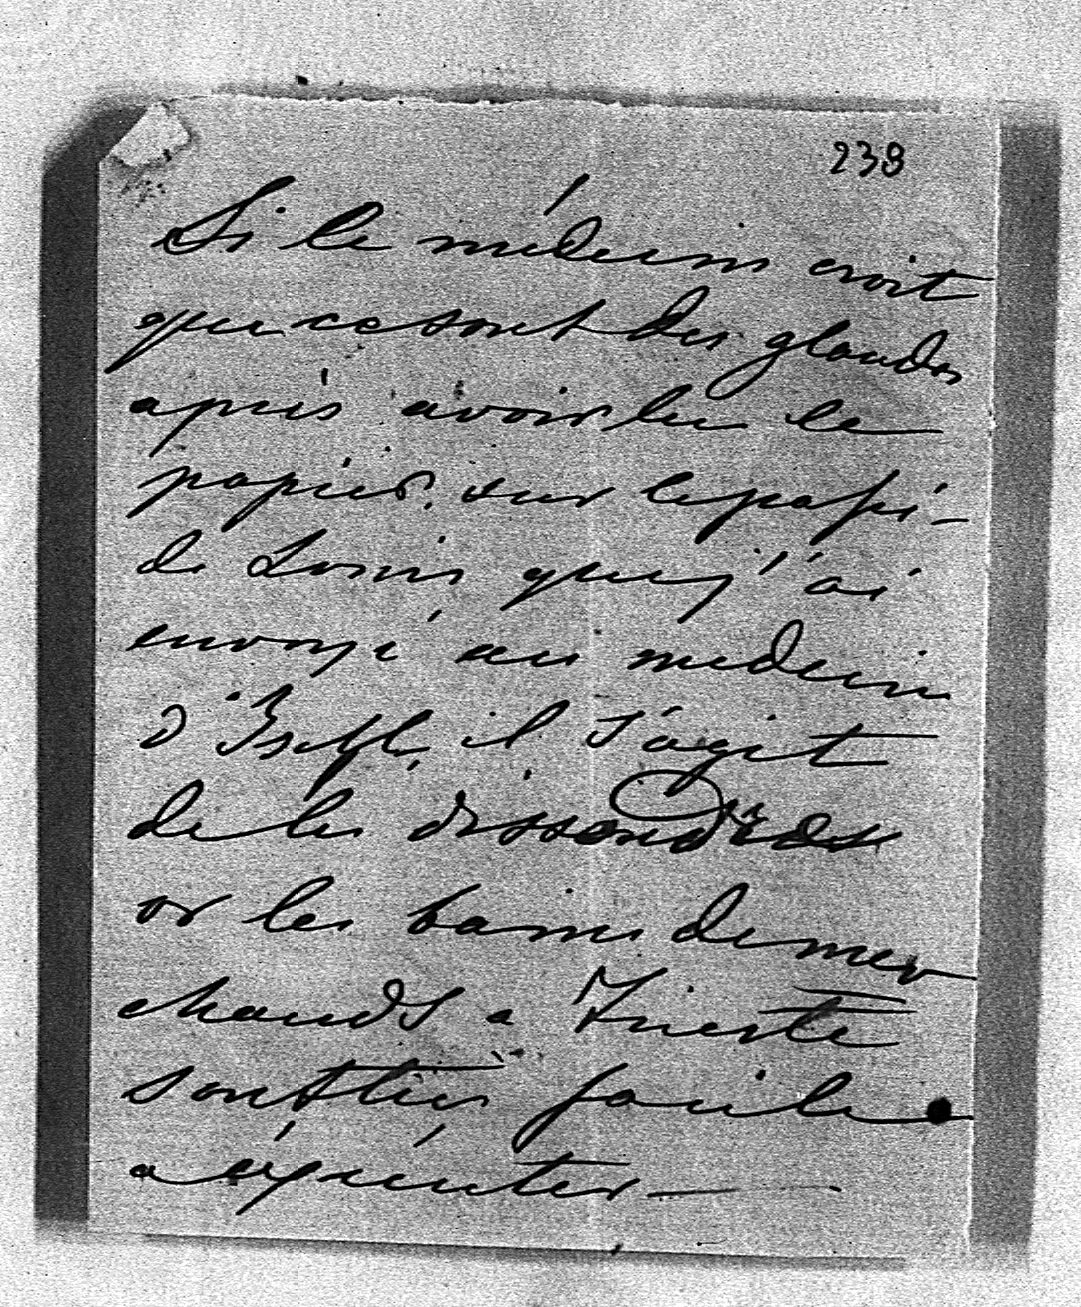 238
Si le médecin croit
que ce sont des glandes
après avoir lu le
papier. sur le papi-
de Louis que j'ai
envoyé au medecin
d'Ischl, il s'agit
de les
or les bains de mer
chauds a Trieste
sont très facile
a